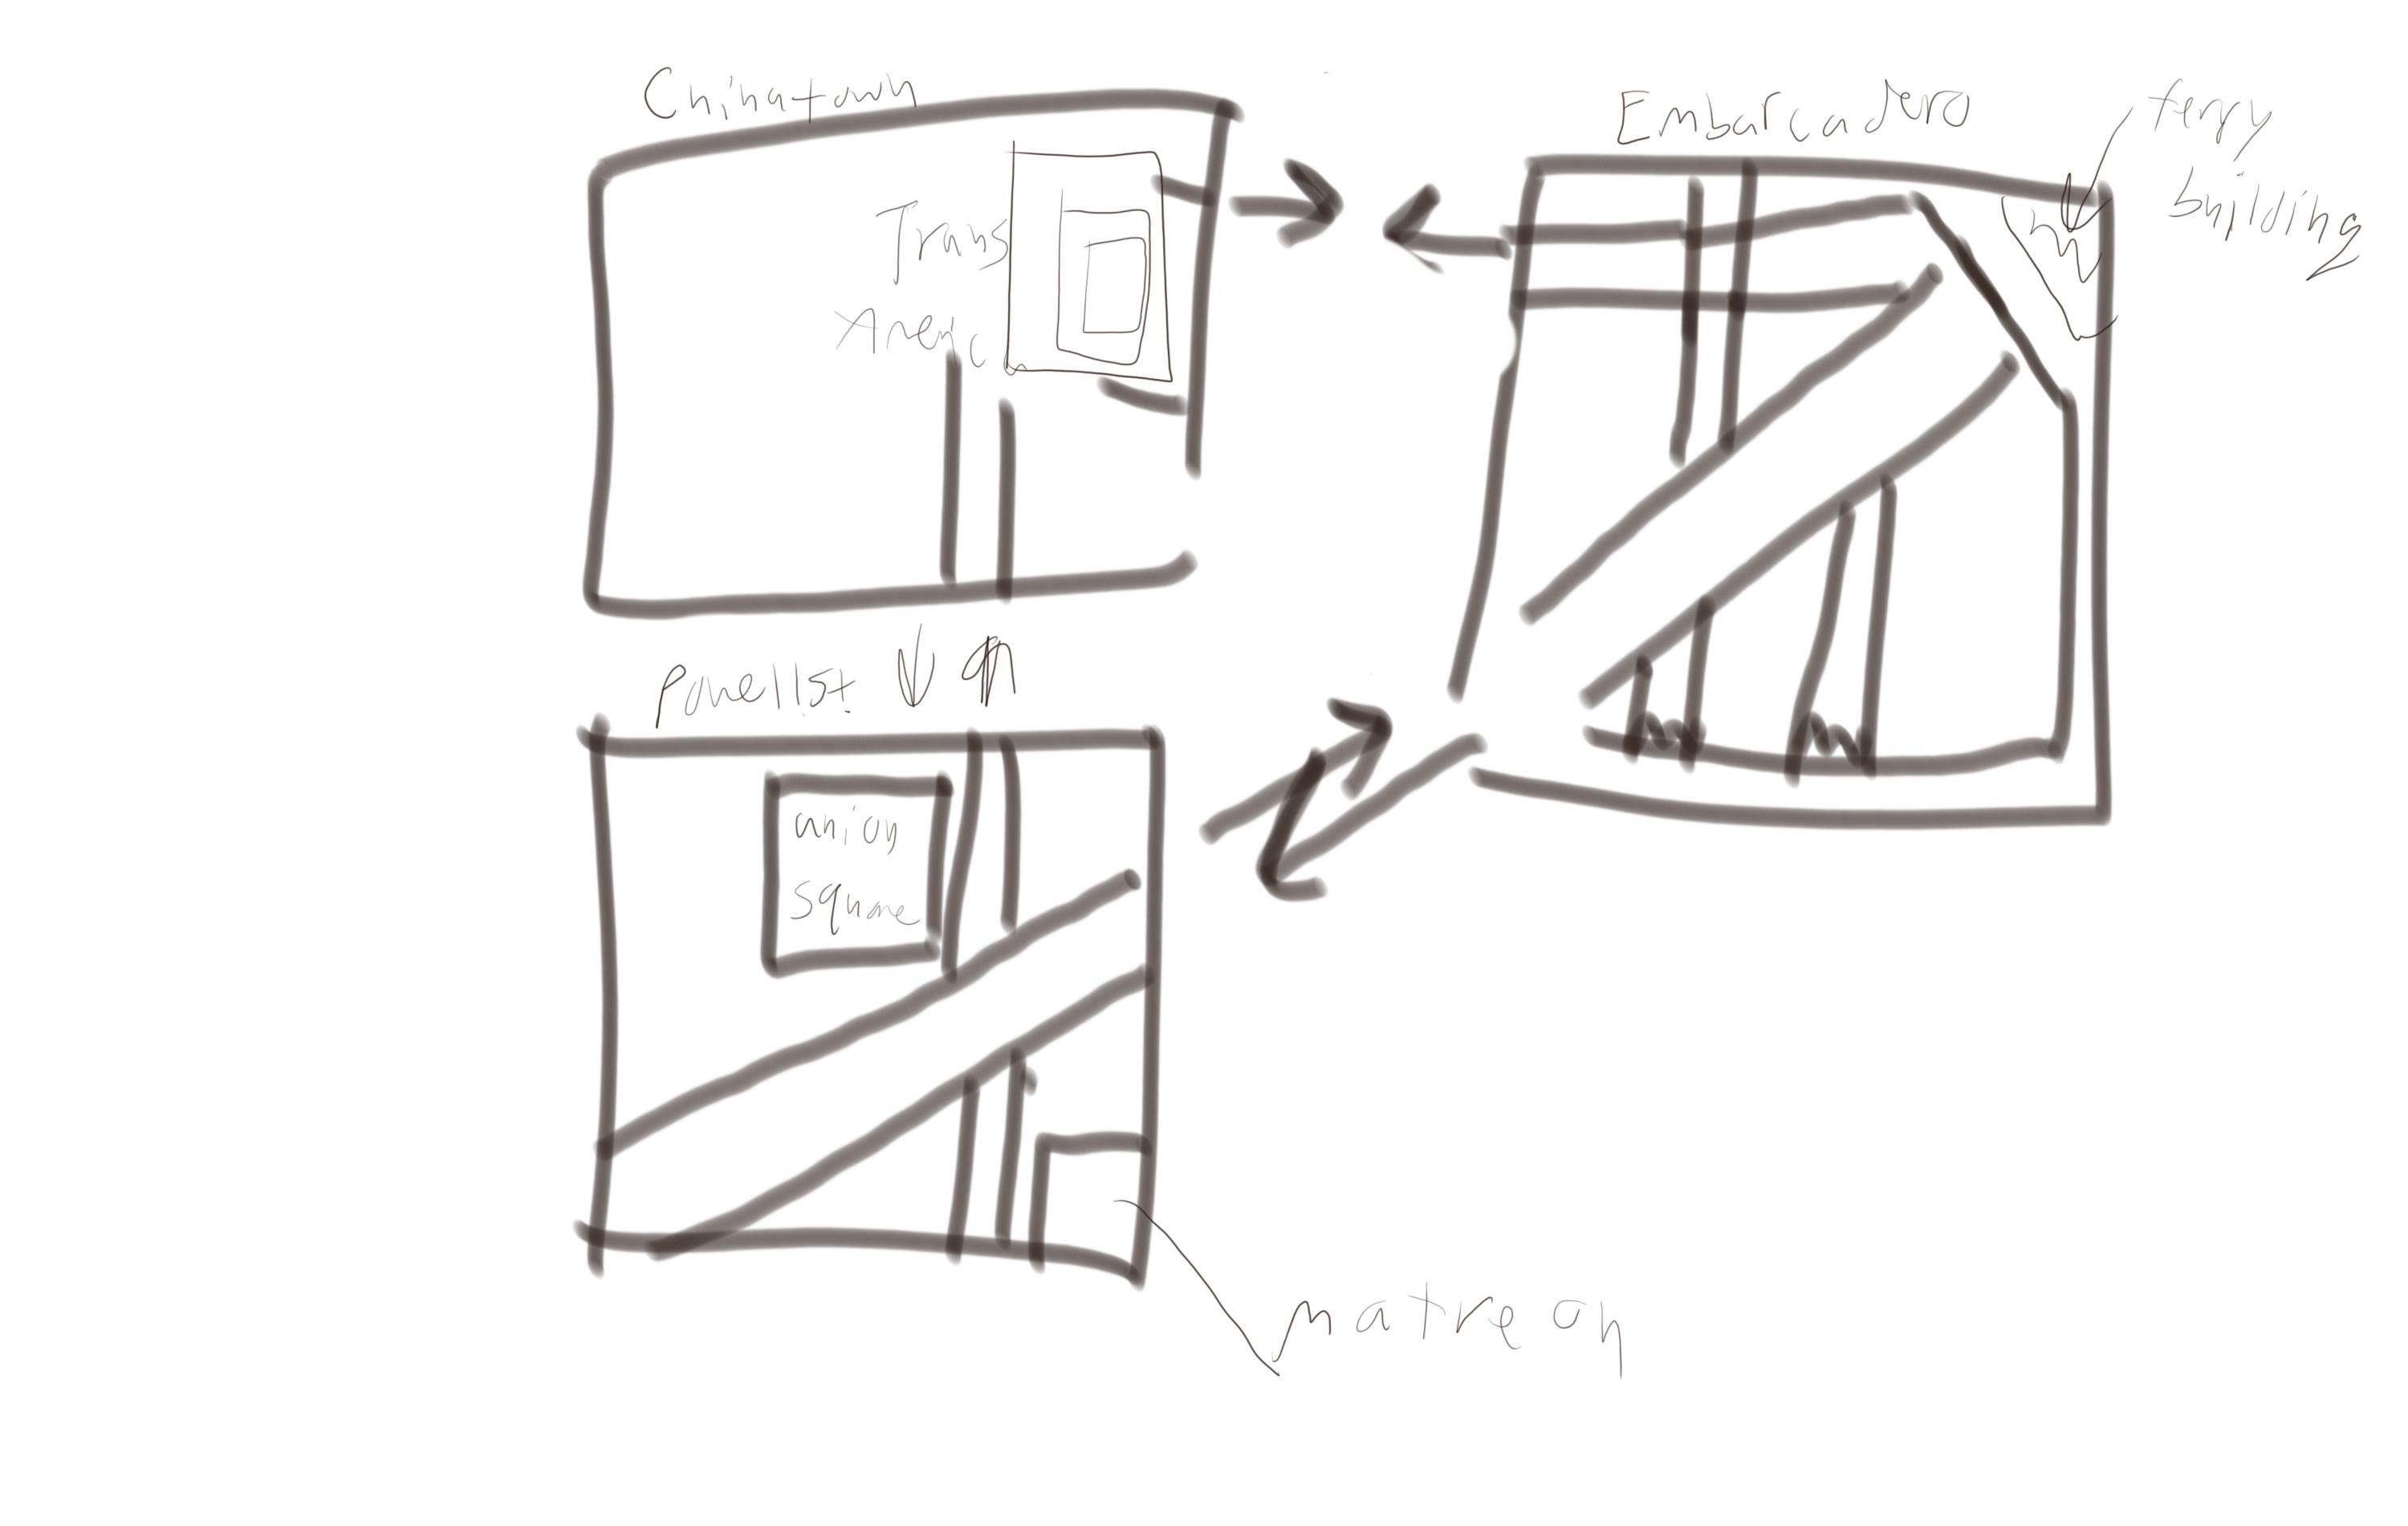 Chinatown
Trans
Americ
Embarcadero
ferry
building
Powell st.
union
square
matreon